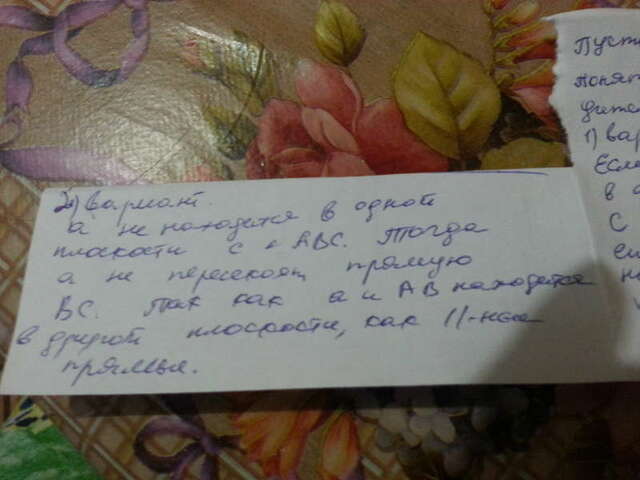 2) вариант.
а не находется в одной
плоскости с ABC. Тогда
а не пересекает прямую
BC. Так как а и AB находется
в другой плоскости, как II-ные
прямые.
Пусть
1) вар
Если
в
с